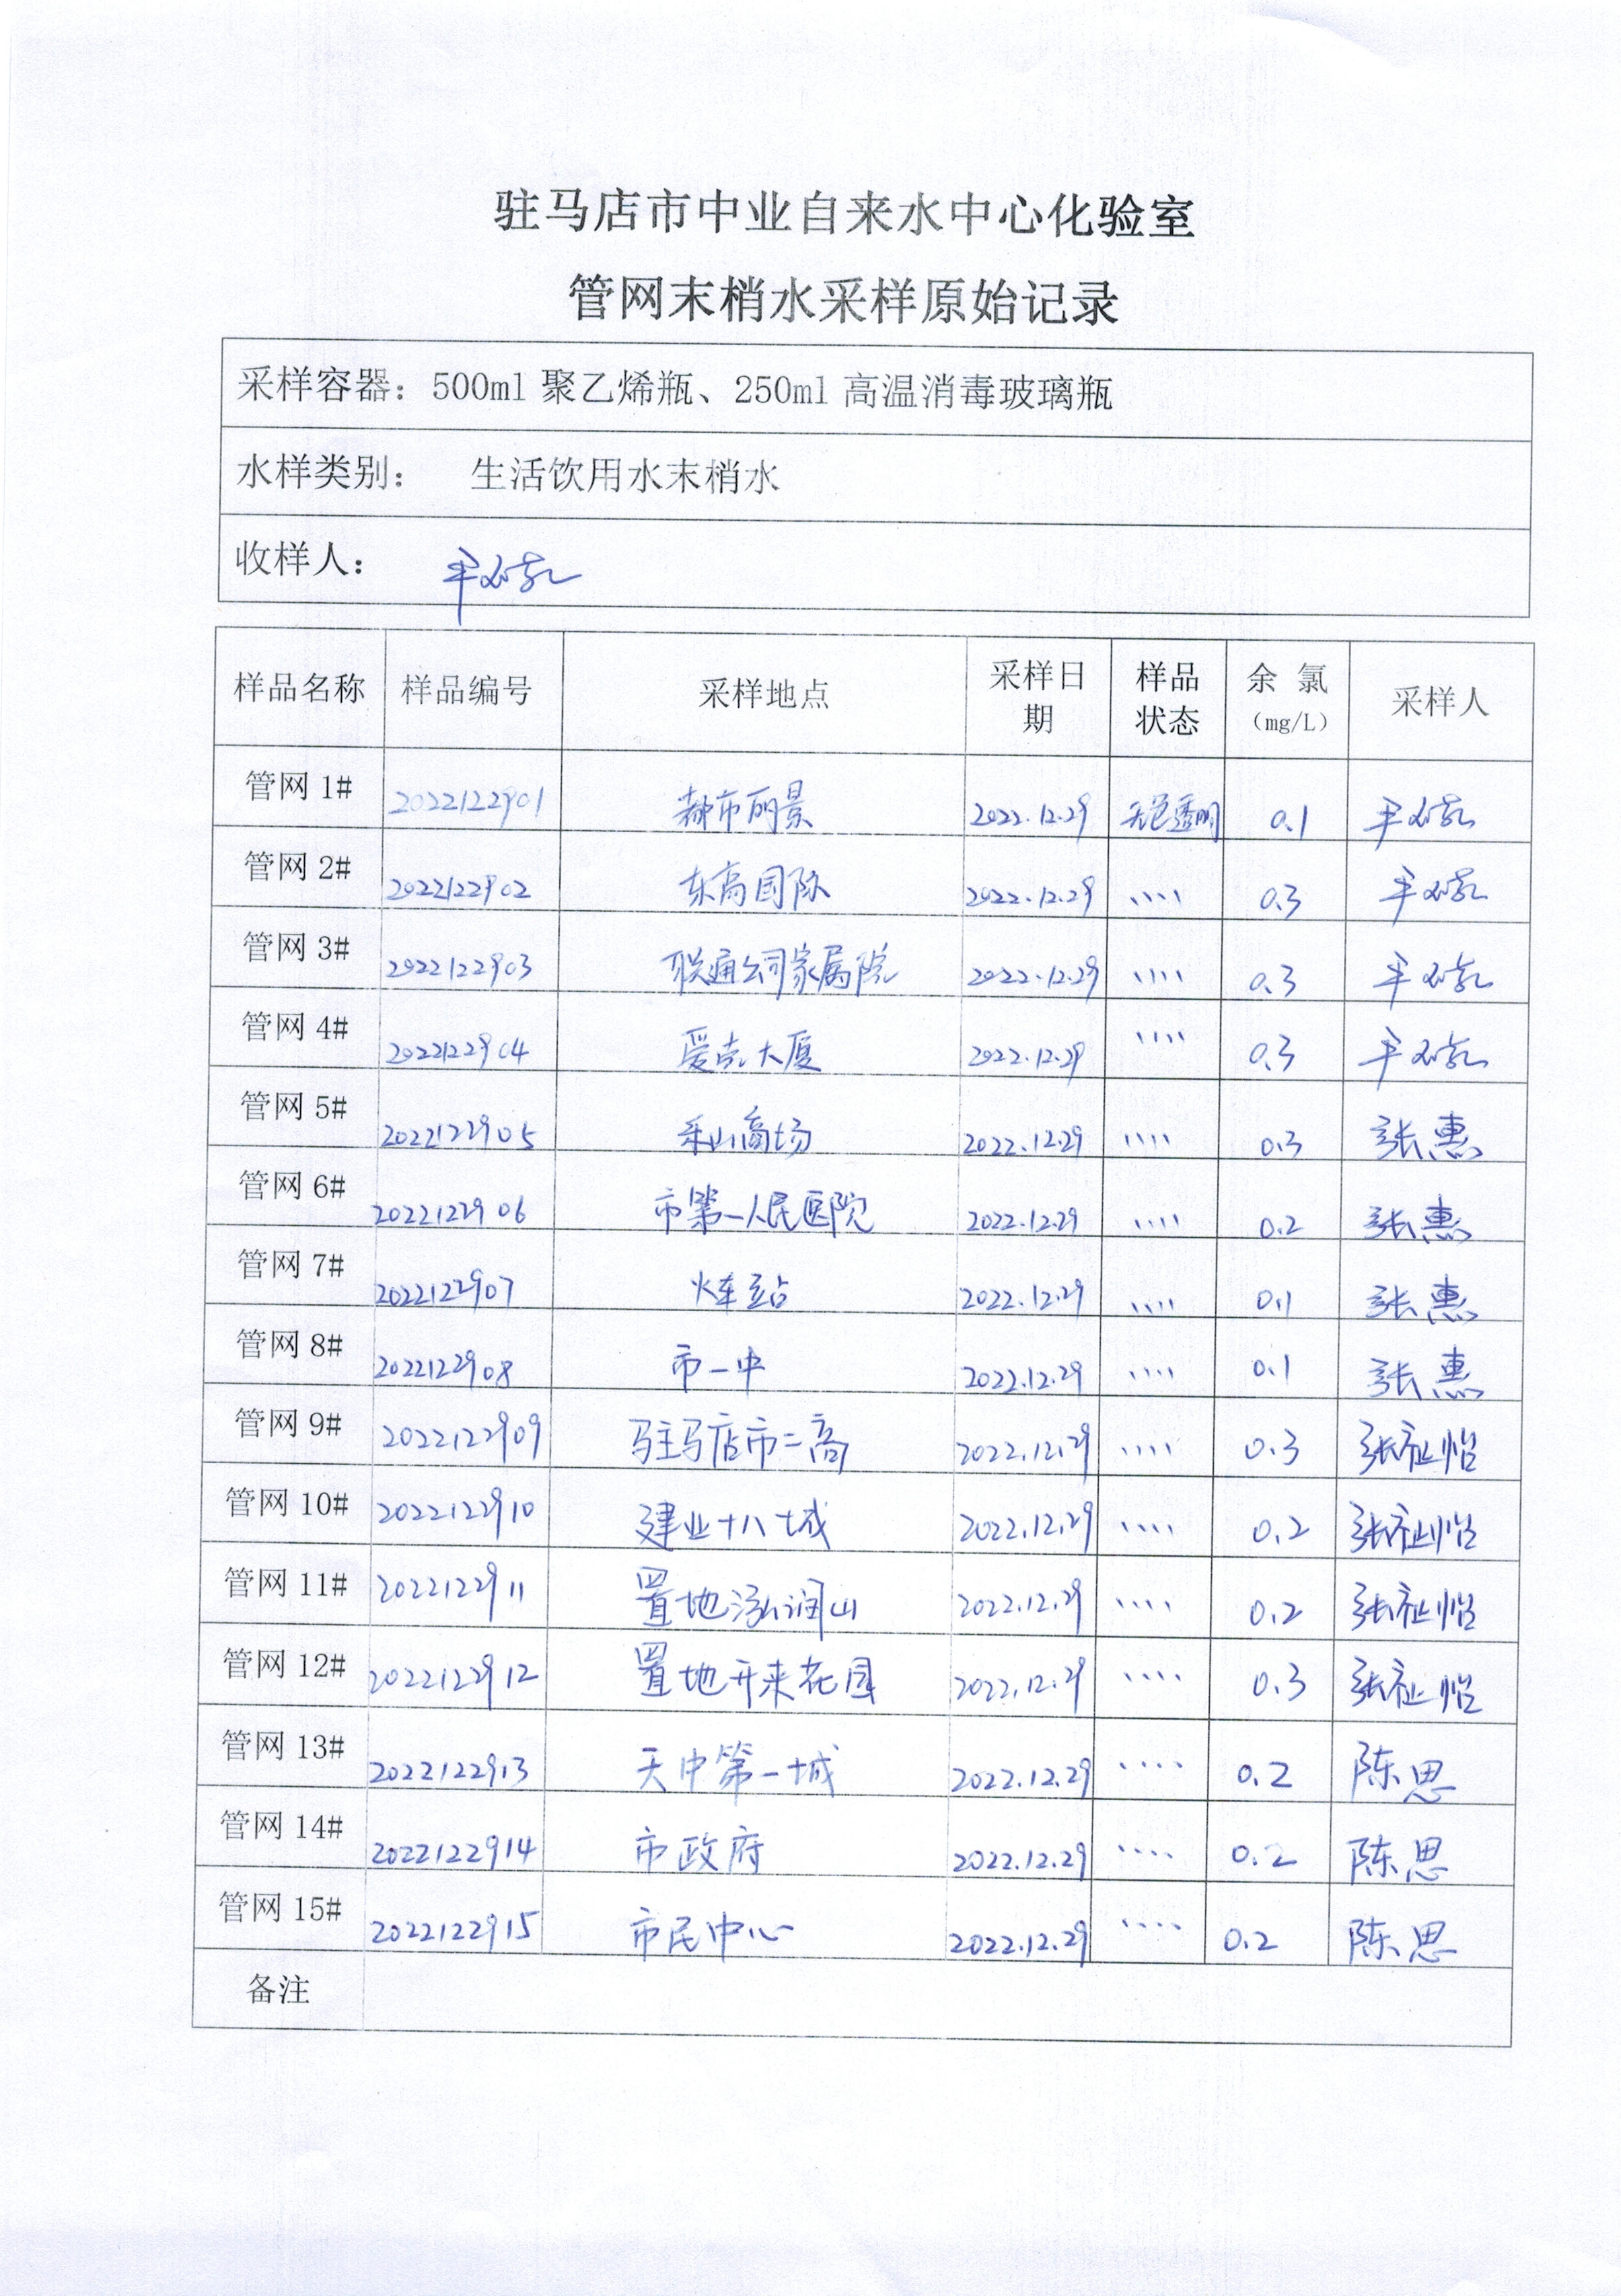 驻马店市中业自来水中心化验室
管网末梢水采样原始记录
采样容器：500ml 聚乙烯瓶、250ml 高温消毒玻璃瓶
水样类别： 生活饮用水末梢水
收样人：
样品名称 样品编号 采样地点 采样日期 样品状态 余氯（mg/L） 采样人
管网 1# 2022122901 都市丽景 2022.12.29 无色透明 0.1
管网 2# 2022122902 东高国际 2022.12.29 、、、、 0.3
管网 3# 2022122903 联通公司家属院 2022.12.29 、、、、 0.3
管网 4# 2022122904 爱克大厦 2022.12.29 、、、、 0.3
管网 5# 2022122905 乐山商场 2022.12.29 、、、、 0.3 张惠
管网 6# 2022122906 市第一人民医院 2022.12.29 、、、、 0.2 张惠
管网 7# 2022122907 火车站 2022.12.29 、、、、 0.1 张惠
管网 8# 2022122908 市一中 2022.12.29 、、、、 0.1 张惠
管网 9# 2022122909 驻马店市二高 2022.12.29 、、、、 0.3 张祉怡
管网 10# 2022122910 建业十八城 2022.12.29 、、、、 0.2 张祉怡
管网 11# 2022122911 置地泓润山 2022.12.29 、、、、 0.2 张祉怡
管网 12# 2022122912 置地开来花园 2022.12.29 、、、、 0.3 张祉怡
管网 13# 2022122913 天中第一城 2022.12.29 、、、、 0.2 陈思
管网 14# 2022122914 市政府 2022.12.29 、、、、 0.2 陈思
管网 15# 2022122915 市民中心 2022.12.29 、、、、 0.2 陈思
备注